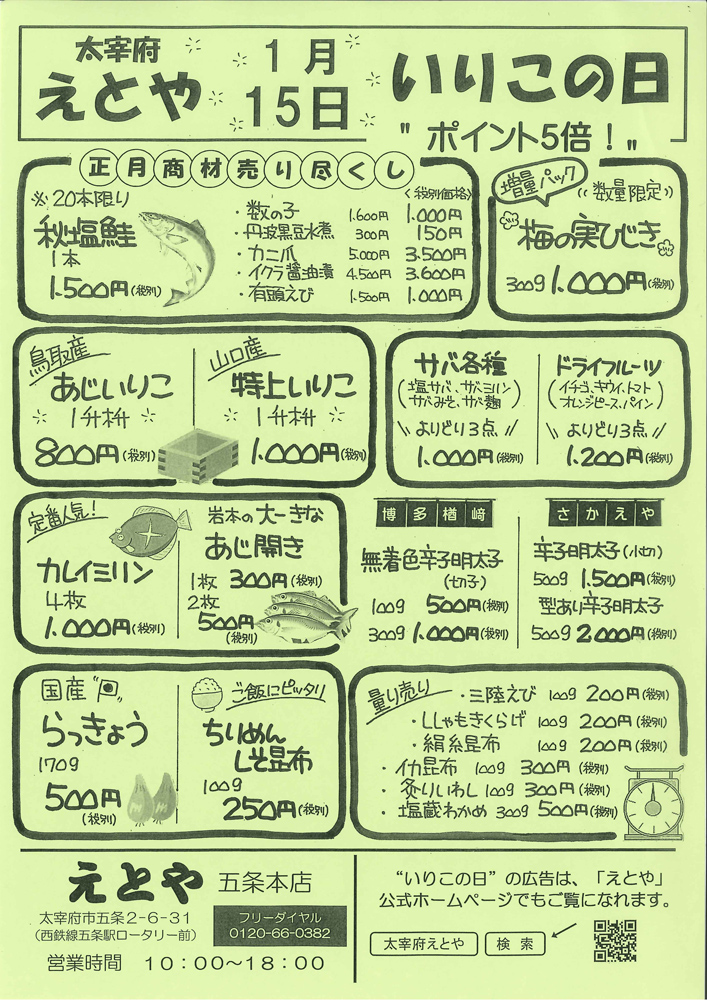 太宰府
えとや
1月
15日
いりこの日
"ポイント5倍!"
正月商材売り尽くし
※20本限り
秋塩鮭
1本
1.500円(税別)
〈税別価格〉
・数の子 1.600円 1.000円
・丹波黒豆水煮 300円 150円
・カニ爪 5.000円 3.500円
・イクラ醤油漬 4.500円 3.600円
・有頭えび 1.500円 1.000円
増量パック
((数量限定))
梅の実ひじき
300g 1.000円(税別)
鳥取産
あじいりこ
1升枡
800円(税別)
山口産
特上いりこ
1升枡
1.000円(税別)
サバ各種
(塩サバ、サバミリン
サバみそ、サバ麹)
\\ よりどり3点 //
1.000円(税別)
ドライフルーツ
(イチゴ、キウイ、トマト
オレンジピース、パイン)
\\ よりどり3点 //
1.200円(税別)
定番人気!
カレイミリン
4枚
1.000円(税別)
岩本の大ーきな
あじ開き
1枚 300円(税別)
2枚
500円
(税別)
博多楢﨑
無着色辛子明太子
(切子)
100g 500円(税別)
300g 1.000円(税別)
さかえや
辛子明太子(小切)
500g 1.500円(税別)
型あり辛子明太子
500g 2.000円(税別)
国産
らっきょう
170g
500円
(税別)
ご飯にピッタリ
ちりめん
しそ昆布
100g
250円(税別)
量り売り
・三陸えび 100g 200円(税別)
・ししゃもきくらげ 100g 200円(税別)
・絹糸昆布 100g 200円(税別)
・イカ昆布 100g 300円(税別)
・炙りいわし 100g 300円(税別)
・塩蔵わかめ 300g 500円(税別)
えとや 五条本店
太宰府市五条2-6-31
(西鉄線五条駅ロータリー前)
フリーダイヤル
0120-66-0382
営業時間 10:00～18:00
"いりこの日"の広告は、「えとや」
公式ホームページでもご覧になれます。
太宰府えとや 検索